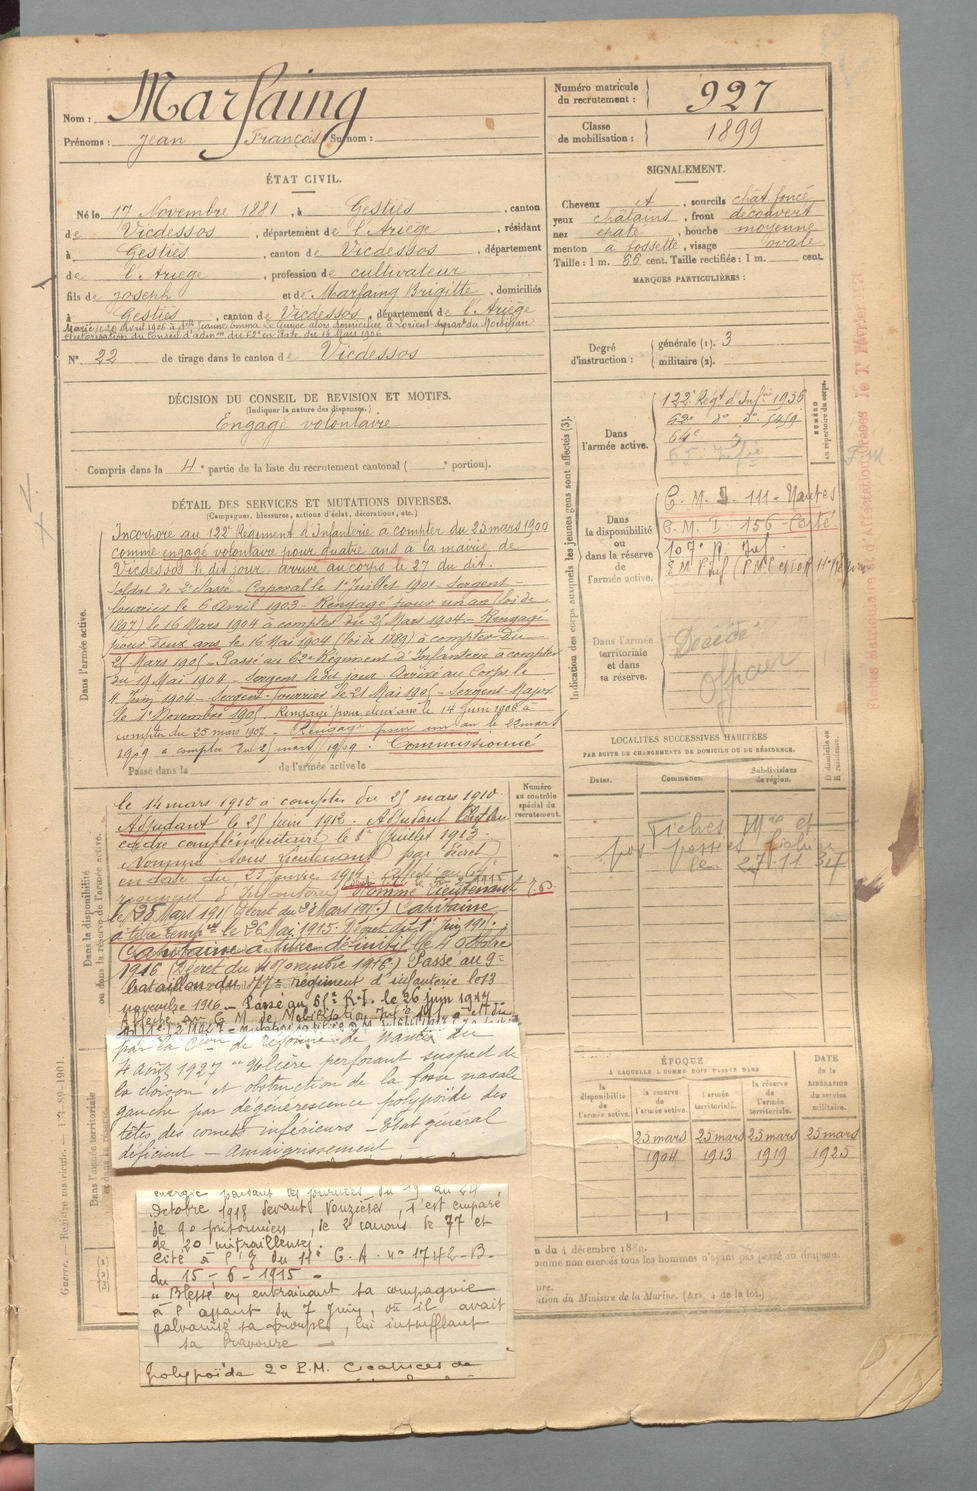 Nom : Marfaing
Prénoms : Jean François Surnom :
Numéro matricule
du recrutement : 927
Classe
de mobilisation : 1899
ÉTAT CIVIL.
Né le 17 Novembre 1881, à Gestiès, canton
de Vicdessos, département de l'Ariège, résidant
à Gestiès, canton de Vicdessos, département
de l'Ariège, profession de cultivateur
fils de Joseph et de Marfaing Brigitte, domiciliés
à Gestiès, canton de Vicdessos, département de l'Ariège
Marié le 20 Avril 1906 à dlle Jeanne Emma Le Guyce alors domiciliée à Lorient départ du Morbihan
autorisation du Conseil d'admon du 62e en date du 16 Mars 1906
N° 22 de tirage dans le canton de Vicdessos
SIGNALEMENT.
Cheveux A, sourcils chât foncé
yeux châtains, front découvert
nez épaté, bouche moyenne
menton à fossette, visage ovale
Taille : 1 m. 66 cent. Taille rectifiée : 1 m. cent.
MARQUES PARTICULIÈRES :
Degré
d'instruction :
générale (1). 3
militaire (2).
DÉCISION DU CONSEIL DE REVISION ET MOTIFS.
(Indiquer la nature des dispenses.)
Engagé volontaire
Compris dans la 4e partie de la liste du recrutement cantonal ( e portion).
DÉTAIL DES SERVICES ET MUTATIONS DIVERSES.
(Campagnes, blessures, actions d'éclat, décorations, etc.)
Dans l'armée active.
Incorporé au 122e Régiment d'Infanterie à compter du 25 mars 1900
comme engagé volontaire pour quatre ans à la mairie de
Vicdessos le dit jour, arrivé au corps le 27 du dit.
Soldat de 2e classe. Caporal le 1er Juillet 1901 – Sergent –
fourrier le 6 Avril 1903 – Rengagé pour un an (loi de
1897) le 16 Mars 1904 à compter du 25 Mars 1904 – Rengagé
pour deux ans le 16 Mai 1904 (loi de 1889) à compter du
25 Mars 1905 – Passé au 62e Régiment d'Infanterie à compter
du 19 Mai 1904 – Sergent le dit jour – Arrivé au Corps le
4 Juin 1904 – Sergent-fourrier le 21 Mai 1905 – Sergent Major
le 1er Novembre 1905. Rengagé pour deux ans le 14 Juin 1906 à
compter du 25 mars 1907 – Rengagé pour un an le 22 mars
1909 à compter du 25 mars 1909. Commissionné
Passé dans la de l'armée active le
Dans la disponibilité
ou dans la réserve de l'armée active.
le 14 mars 1910 à compter du 25 mars 1910.
Adjudant le 25 juin 1912. Adjudant
cadre complémentaire le
Juillet 1913.
Nommé Sous Lieutenant par Décret
en date du 23 janvier
régiment d'Infanterie Nommé Lieutenant
le 28 Mars 1915 (Décret du Mars 1915) Capitaine
à titre temp le 26 Mai 1915. Décret du 1er Juin 1915.
Capitaine à titre définitif le 4 octobre
1916 (Décret du Novembre 1916) Passé au 9e
bataillon du 77e régiment d'infanterie le 13
novembre 1916. – Passé au 65e R.I. le 26 juin 1917
par la Cion de réforme de Nantes du
4 avril 1927
perforant suspect de
la cloison et obstruction de la fosse nasale
gauche par dégénérescence polypoïde des
têtes des cornets inférieurs – Etat général
déficient – Amaigrissement –
énergie pendant les journées du 19 au
Octobre 1918 devant Vouziers, s'est emparé
de 90 prisonniers, de 2 canons de 77 et
de 20 mitrailleuses.
Cité à l'O du 11e C. A. no 1742-B.
du 15-6-1915 –
" Blessé en entraînant sa compagnie
à l'assaut du 7 Juin, où il avait
galvanisé sa troupe, lui insufflant
sa bravoure –
polypoïde 2° P.M. Cicatrices de
Numéro
au contrôle
spécial du
recrutement.
Dans l'armée territoriale
Guerre. – Registre matricule. –
Indication des corps auxquels les jeunes gens sont affectés (3).
NUMÉRO
au répertoire du corps.
Dans
l'armée active.
122e Régt d'Infie 1956
62e do do 5459
64e
65e Infie
Dans
la disponibilité
ou
dans la réserve
de
l'armée active.
C. M. I. 111 – Nantes
C. M. I. 156 –
107e
Dans l'armée
territoriale
et dans
sa réserve.
Décédé
Officier
LOCALITÉS SUCCESSIVES HABITÉES
PAR SUITE DE CHANGEMENTS DE DOMICILE OU DE RÉSIDENCE.
Dates.
Communes.
Subdivisions
de région.
D domicile ou
R résidence.
Fiches Mle et
passées
le 27.11.34
ÉPOQUE
À LAQUELLE L'HOMME DOIT PASSER DANS
la
disponibilité
de
l'armée active.
la réserve
de
l'armée active.
l'armée
territoriale.
la réserve
de
l'armée
territoriale.
DATE
de la
LIBÉRATION
du service
militaire.
25 mars
1904
25 mars
1913
25 mars
1919
25 mars
1925
n du 4 décembre 1889.
omme non exercés tous les hommes n'ayant pas passé au drapeau.
ition du Ministre de la Marine. (Art. 4 de la loi.)